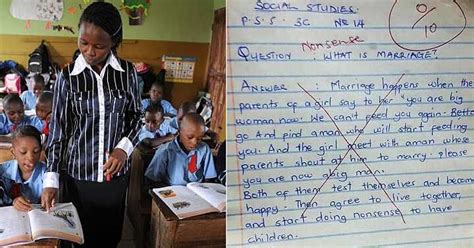 SOCIAL STUDIES.
P.S.S. 5 3C No 14
0
10
Nonsense
QUESTION: WHAT IS MARRIAGE?
ANSWER: Marriage happens when the
parents of a girl say to her you are big
woman now. We can't feed you again. Better
go And find a man who will start feeding
you. And the girl meet with a man whose
parents shout at him to marry please
you are now a big man.
Both of them test themselves and become
happy. Then agree to live together,
and start doing nonsense to have
children.